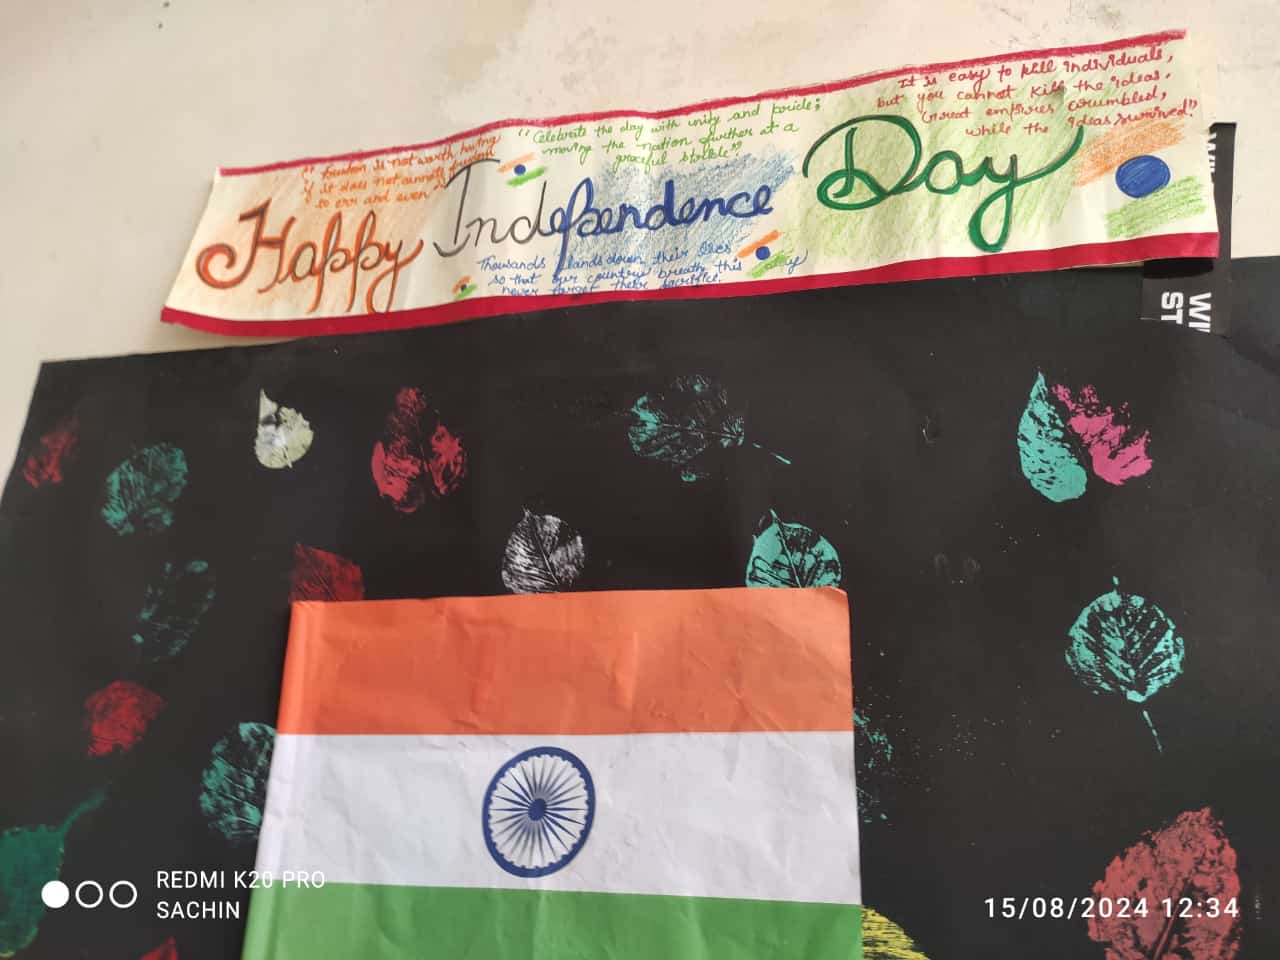 " freedom is not worth having
if it does not connote freedom
to err and even "
" Celebrate the day with unity and pride;
moving the nation further at a
graceful stroke"
It is easy to kill individuals,
but you cannot kill the ideas.
Great empires crumbled,
while the ideas survived."
Happy Independence Day
Thousands lands down their lives
so that our country breath this day
never forget their sacrifice.
WI
ST
REDMI K20 PRO
SACHIN
15/08/2024 12:34